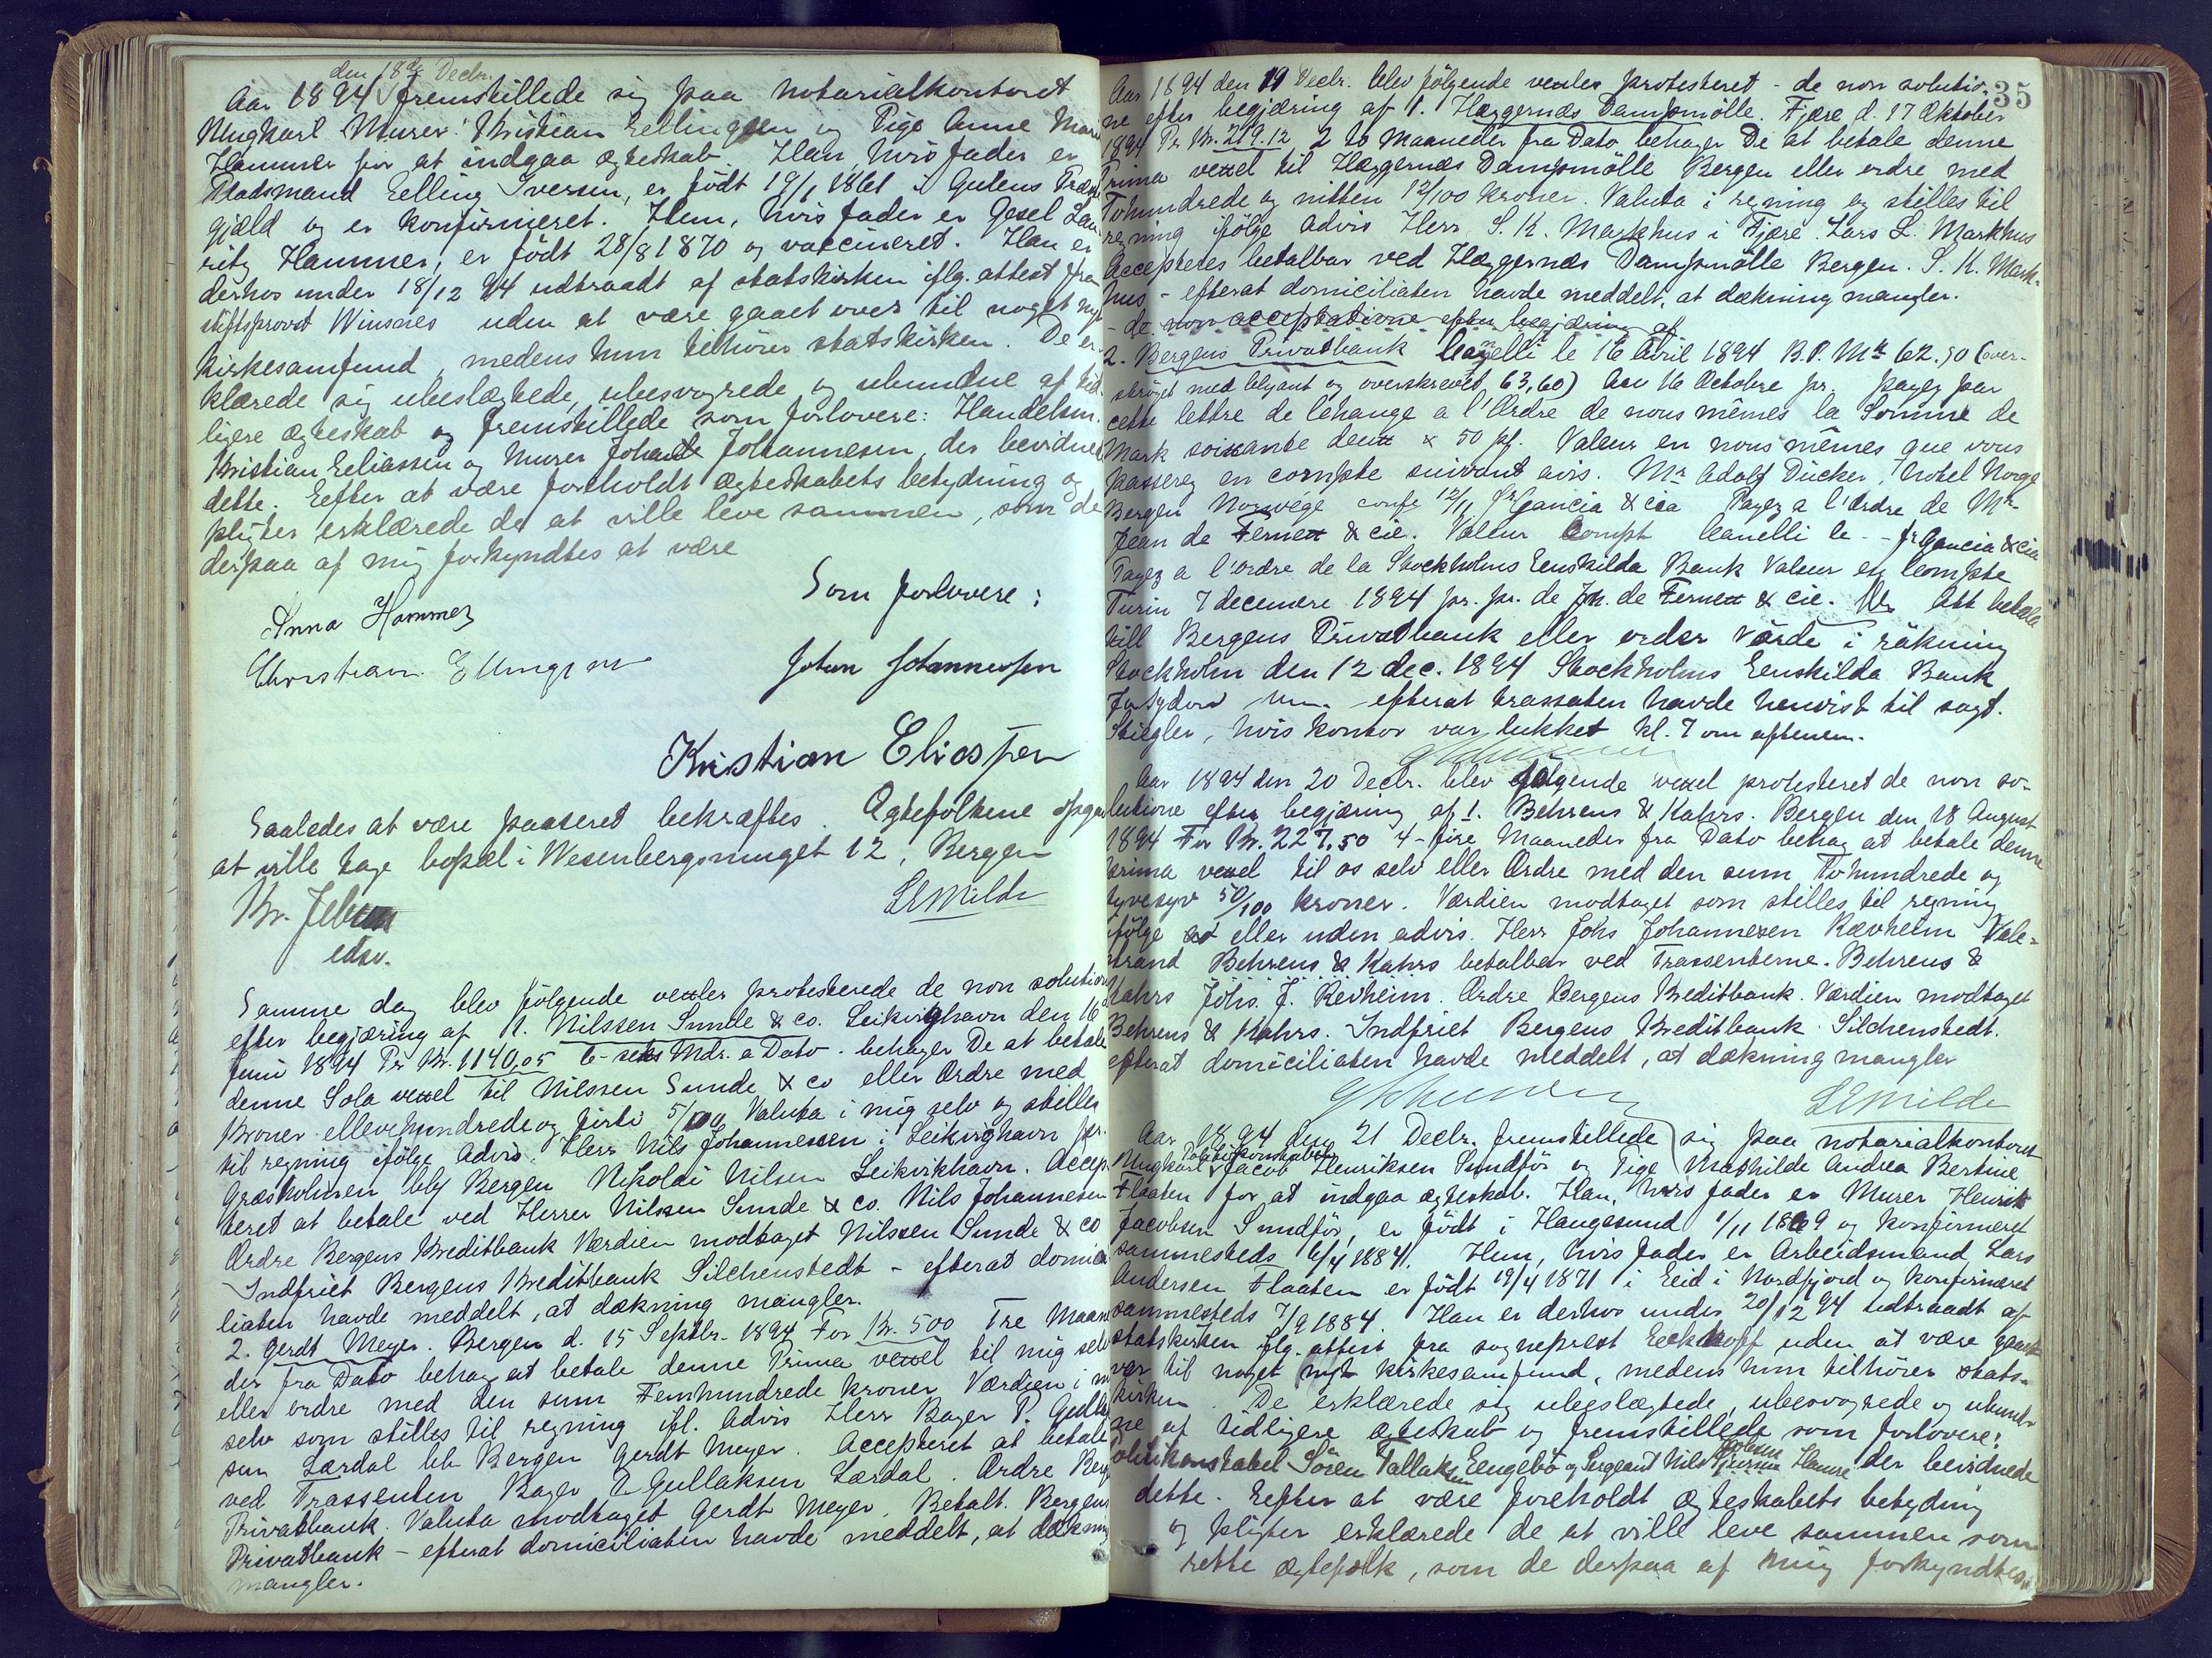 den 18de Decbr.
Aar 1894 fremstillede sig paa Notarialkontoret
Ungkarl Murer Kristian Ellingsen og Pige Anne Marie
Hammer for at indgaa ægteskab. Han, hvis fader er
Pladsmand Elling Iversen, er født 19/1 1861 i Gulens Præste
gjæld og er konfirmeret. Hun, hvis fader er Gesel Lau
ritz Hammer, er født 28/8 1870 og vaccineret. Han er
derhos under 18/12 94 udtraadt af statskirken iflg. attest fra
stiftsprovst Winsnes uden at være gaaet over til noget nyt
kirkesamfund, medens hun tilhører statskirken. De er
klærede sig ubeslægtede, ubesvogrede og ubundne af tid
ligere ægteskab og fremstillede som forlovere: Handelsm.
Kristian Eeliassen og Murer Johan Johannesen, der bevidnede
dette. Eefter at være foreholdt ægteskabets betydning og
pligter erklærede de at ville leve sammen, som de
derpaa af mig forkyndtes at være
Som forlovere:
Anna Hammer
Christian Ellingsen
Johan Johannessen
Kristian Eliassen
Saaledes at være passeret bekræftes. Ægtefolkene opgav
at ville tage bopæl i Wesenbergsmuget 12, Bergen
Kr. Jebsen
edsv.
LEMilde
Samme dag blev følgende vexler protesterede de non solutione
efter begjæring af 1. Nilssen Sunde & co. Leikvighavn den 16
Juni 1894 Pr Kr. 1140,05 6 - seks Mdr. a Dato. behager De at betale
denne Sola vexel til Nilssen Sunde & co eller Ordre med
Kroner ellevehundrede og førti 5/100 Valuta i mig selv og stilles
til regning ifølge Advis. Herr Nils Johannessen i Leikvighavn pr.
Græsholmen bly Bergen Nikolai Nilsen Leikvikhavn. Accep
teret at betale ved Herrer Nilssen Sunde & co. Nils Johannesen
Ordre Bergens Kreditbank Værdien modtaget Nilssen Sunde & co
Indfriet Bergens Kreditbank Silchenstedt - efterat domici
liaten havde meddelt, at dækning mangler.
2. Gerdt Meyer. Bergen d. 15 Septbr. 1894 For Kr. 500 Tre Maane
der fra Dato behag at betale denne Prima vexel til mig selv
eller ordre med den sum Femhundrede kroner Værdien i m
selv som stilles til regning ifl. Advis Herr Bager P. Gulla
sen Lærdal bb Bergen Gerdt Meyer. Accepteret at betale
ved Trassenten Bager P Gullaksen Lærdal. Ordre Berg
Privatbank. Valuta modtaget Gerdt Meyer. Betalt. Bergens
Privatbank - efterat domiciliaten havde meddelt, at dækning
mangler.
35
Aar 1894 den 19 Decbr. blev følgende vexler protesteret - de non solutio-
ne efter begjæring af 1. Hæggernæs Dampmølle. Fjære d. 17 Oktober
1894 Pr Kr. 219.12 2 to Maaneder fra Dato behager De at betale denne
Prima vexel til Hæggernæs Dampmølle Bergen eller ordre med
Tohundrede og nitten 12/100 kroner. Valuta i regning og stilles til
regning ifølge Advis Herr S. K. Markhus i Fjære. Lars L. Markhus
Accepteres betalbar ved Hæggernæs Dampmølle Bergen. S. K. Mark-
hus - efterat domiciliaten havde meddelt, at dækning mangler.
- de non acceptatione efter begjæring af
2. Bergens Privatbank Canelli le 16 Avril 1894 B.P. Mk 62.50 (over-
strøget med blyant og overskrevet 63,60) Au 16 Octobre pr. payez par
cette lettre de Change a l'Ordre de nous mêmes la Somme de
Mark soixante deux & 50 pf. Valeur en nous mêmes que vous
passerez en compte suivant avis. Mr Adolf Dücker, Hotel Norge
Bergen Norvége confr 12/11 fr Gancia & cia Payez a l'ordre de Mr
Jean de Fernex & cie. Valeur Compt Canelli le - fr Gancia & cia
Payez a l'ordre de la Stockholms Eenskilda Bank Valeur en Compte
Turin 7 decembre 1894 pr. pr. de Jh. de Fernex & cie. Att betala
till Bergens Privatbank eller order Värde i räkning
Stockholm den 12 dec. 1894 Stockholms Eenskilda Bank
efterat trassaten havde henvist til sagf.
Stiegler, hvis kontor var lukket kl. 7 om aftenen.
Aar 1894 den 20 Decbr. blev følgende vexel protesteret de non so-
lutione efter begjæring af 1. Behrens & Kahrs. Bergen den 18 August
1894 For Kr. 227.50 4 - fire Maaneder fra Dato behag at betale denne
prima vexel til os selv eller Ordre med den sum Tohundrede og
tyvesyv 50/100 kroner. Værdien modtaget som stilles til regning
ifølge eller uden advis. Herr Johs Johannesen Rævheim Vale-
strand Behrens & Kahrs betalbar ved Trassenterne. Behrens &
Kahrs Johs. J. Revheim. Ordre Bergens Kreditbank. Værdien modtaget
Behrens & Kahrs. Indfriet Bergens Kreditbank Silchenstedt.
efterat domiciliaten havde meddelt, at dækning mangler
LEMilde
Aar 1894 den 21 Decbr. fremstillede sig paa notarialkontoret
Politikonstabel
Ungkarl Jacob Henriksen Sundfør og Pige Mathilde Andrea Bertine
Flaaten for at indgaa ægteskab. Han, hvis fader er Murer Henrik
Jacobsen Sundfør, er født i Haugesund 1/11 1869 og konfirmeret
sammesteds 6/4 1884. Hun, hvis fader er Arbeidsmand Lars
Andersen Flaaten er født 19/4 1871 i Eeid i Nordfjord og konfirmeret
sammesteds 7/9 1884. Han er derhos under 20/12 94 udtraadt af
statskirken iflg. attest fra sogneprest Eeckhoff uden at være gaaet
over til noget nyt kirkesamfund, medens hun tilhører stats-
kirken. De erklærede sig ubeslægtede, ubesvogrede og ubund-
ne af tidligere ægteskab og fremstillede som forlovere:
Politikonstabel Søren Tallaksen Eengebø og Sergeant Nils Hamre der bevidnede
dette. Eefter at være foreholdt ægteskabets betydning
og pligter erklærede de at ville leve sammen som
rette ægtefolk, som de derpaa af mig forkyndtes